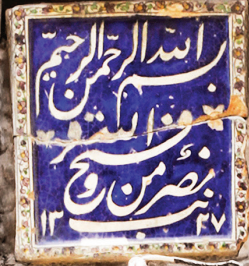 بسم الله الرحمن الرحیم
نصر من الله وفتح قریب
۱۳ ۲۷